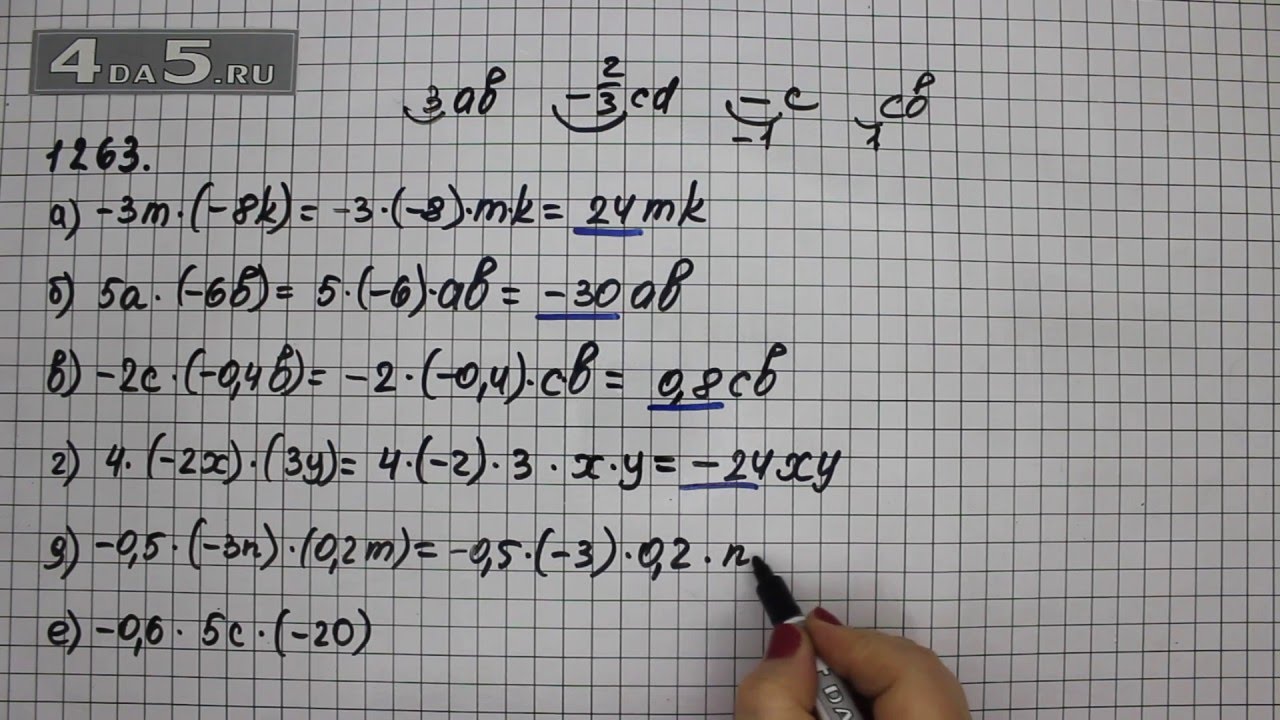 4DA5.RU
3ab -2/3cd -c cb
-1 1
1263.
а) -3m·(-8k)= -3·(-8)·m·k= 24mk
б) 5a·(-6b)= 5·(-6)·ab= -30ab
в) -2c·(-0,4b)= -2·(-0,4)·cb= 0,8cb
г) 4·(-2x)·(3y)= 4·(-2)·3·x·y= -24xy
д) -0,5·(-3n)·(0,2m)= -0,5·(-3)·0,2·n
е) -0,6·5c·(-20)